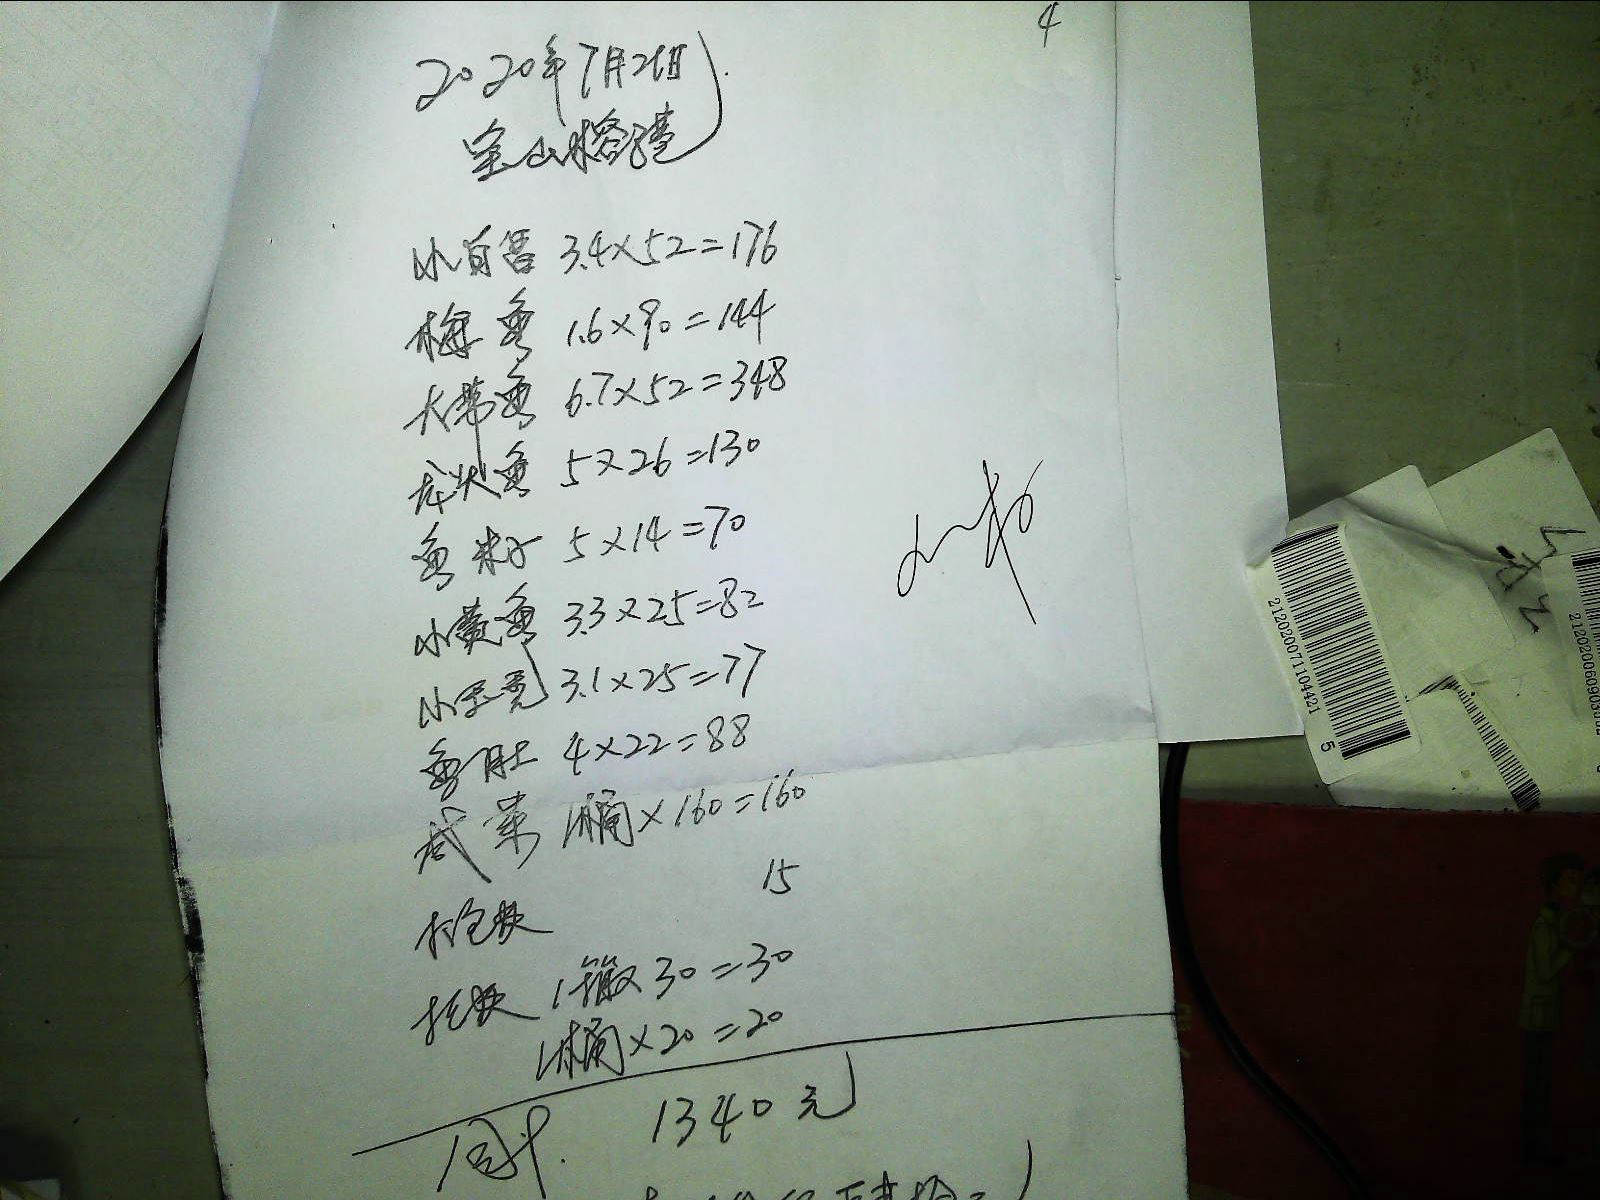 4
2020年7月21日
宝山榕港
小白鲳 3.4×52=176
梅鱼 1.6×90=144
大带鱼 6.7×52=348
龙头鱼 5×26=130
鱼籽 5×14=70
小黄鱼 3.3×25=82
3.1×25=77
鱼肚 4×22=88
咸菜 1桶×160=160
打包费 15
托费 1箱×30=30
1桶×20=20
1340元
2120200711044421
5